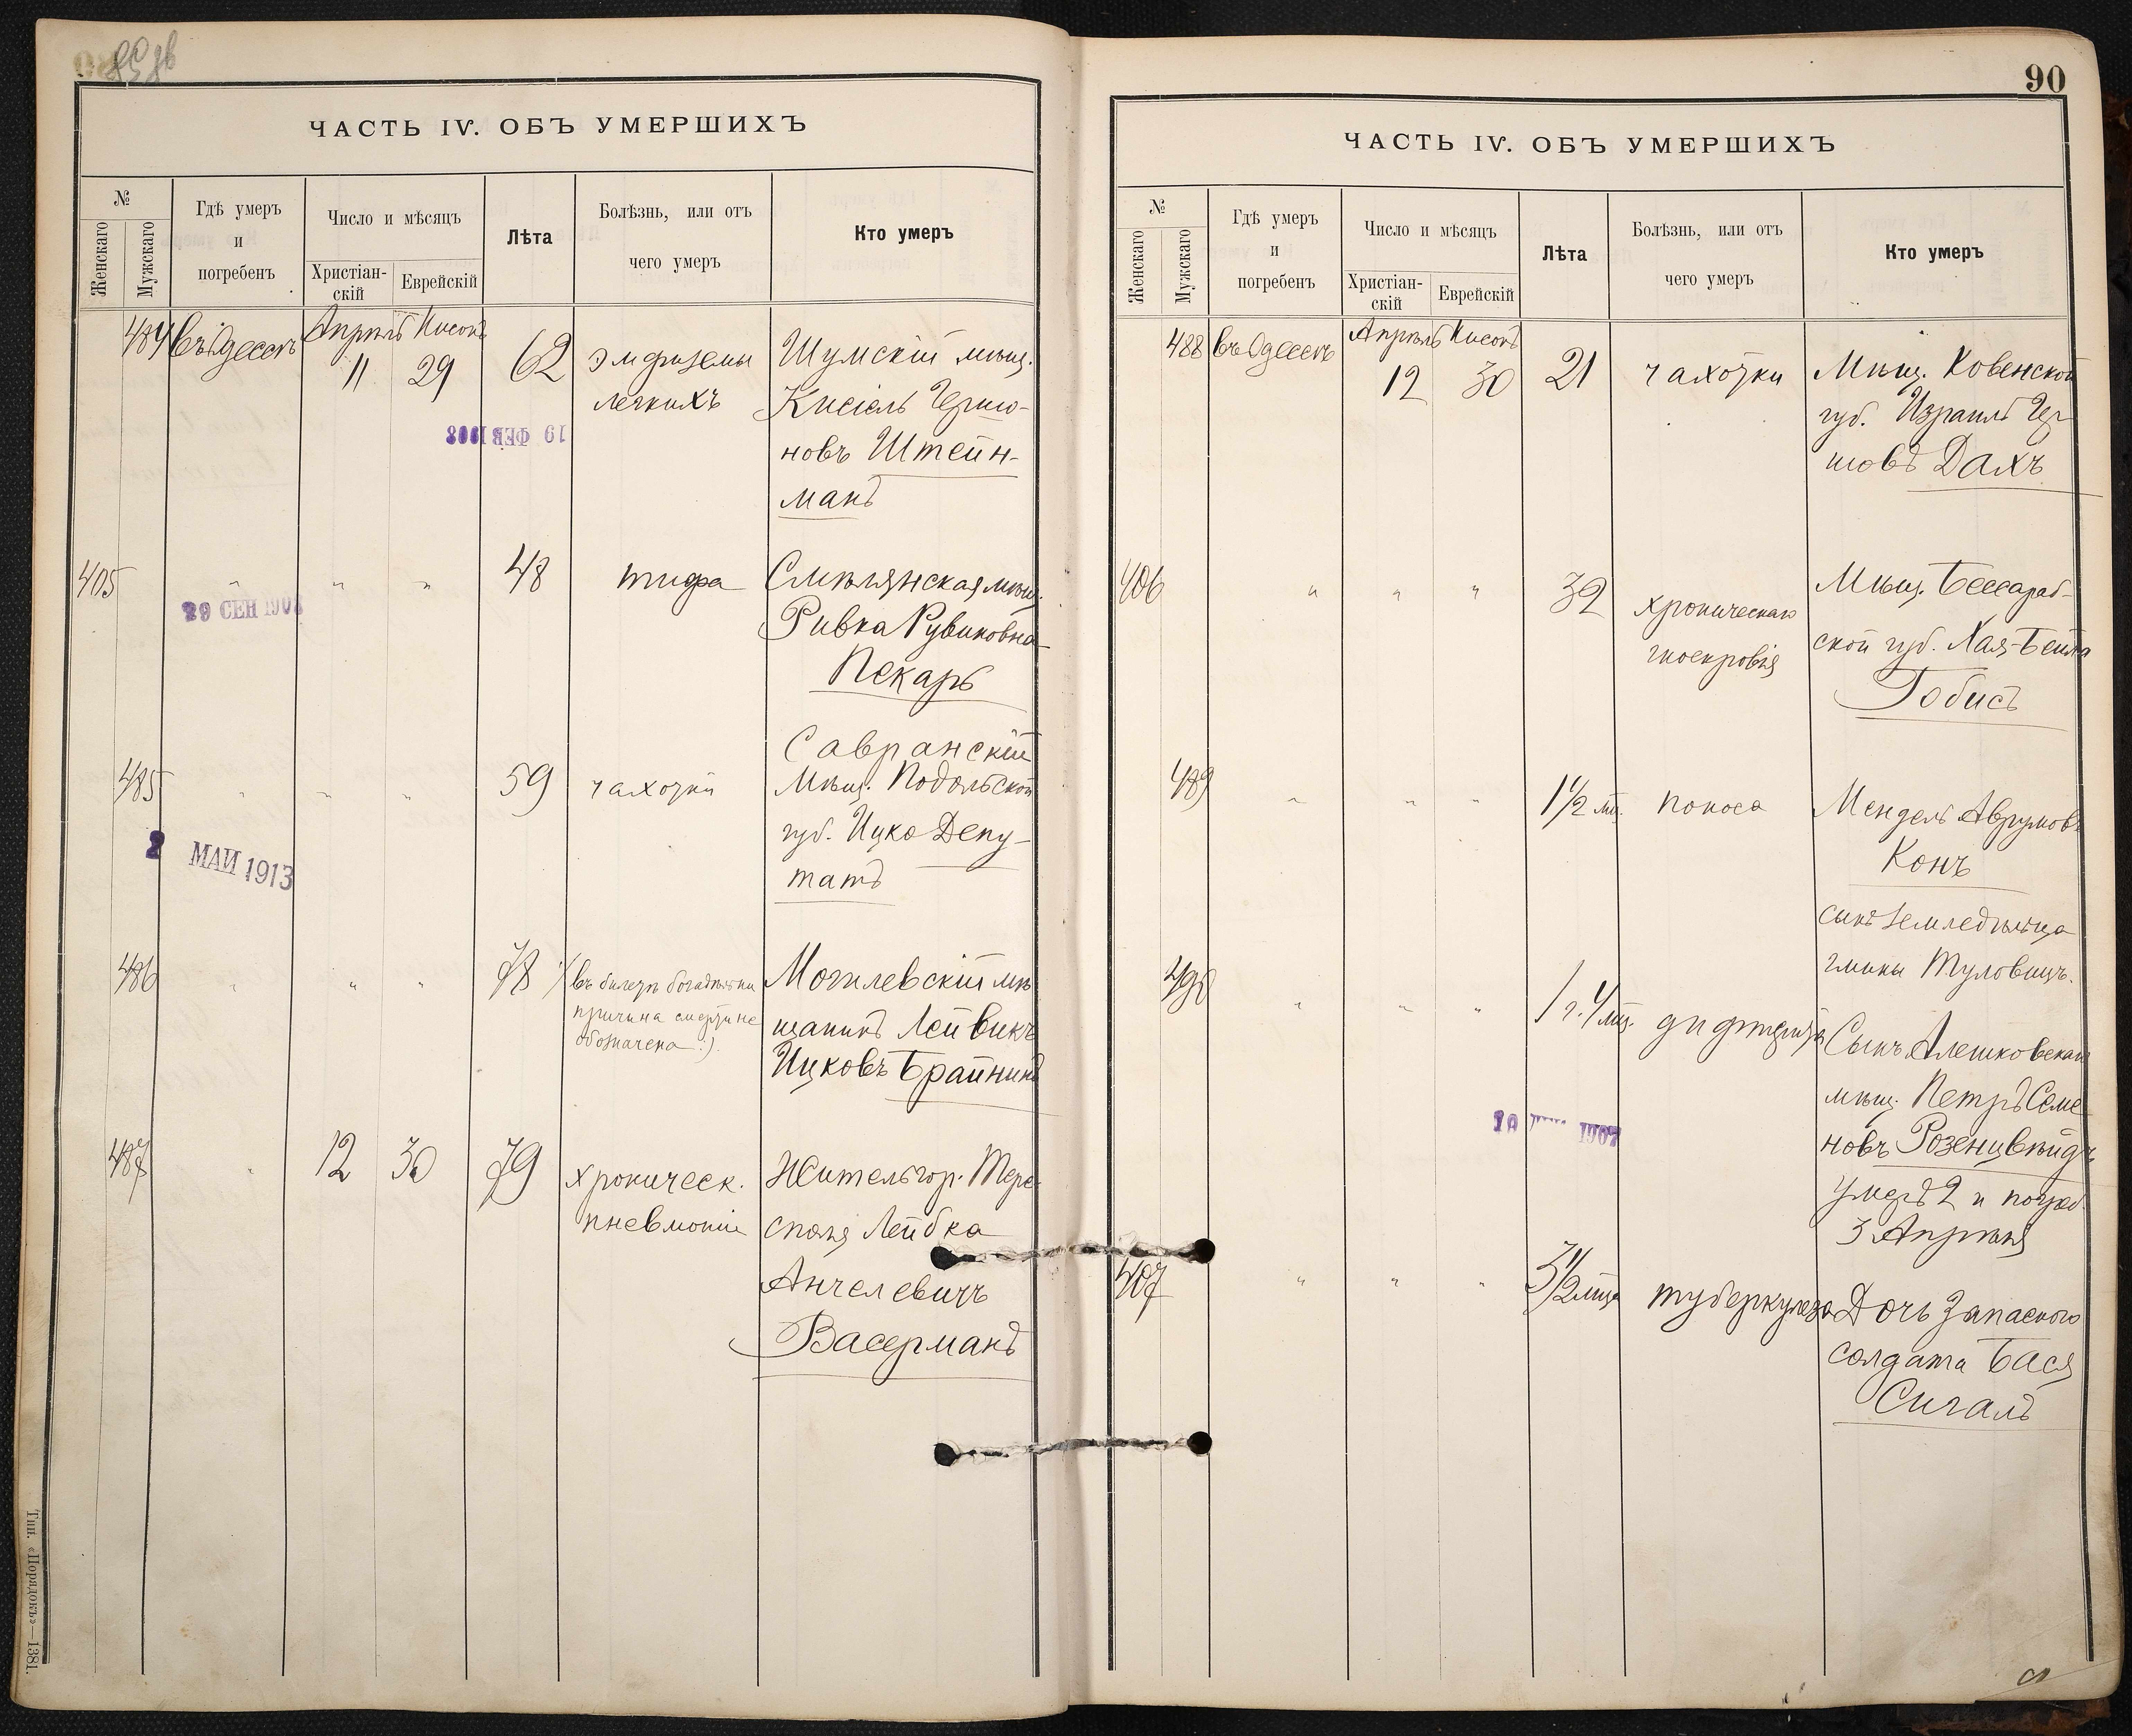 ЧАСТЬ IV. ОБЪ УМЕРШИХЪ
№
Женскаго
Мужскаго
Гдѣ умеръ
и
погребенъ
Число и мѣсяцъ
Христіан-
скій
Еврейскій
Лѣта
Болѣзнь, или отъ
чего умеръ
Кто умеръ
484 Въ Одессѣ Апрѣль Нисонъ
11 29 62 эмфиземы Шумскій мѣщ.
легкихъ Кисіель Гершо-
19 ФЕВ 1908
новъ Штейн-
манъ
405 " " " 48 тифа Смѣлянская мѣщ.
29 СЕН 1908
Ривка Рувиновна
Пекарь
Савранскій
485 " " " 59 чахотки Мѣщ. Подольской
губ. Ицко Депу-
2 МАЙ 1913
татъ
486 " " " 78 (въ билетѣ богадѣльни Могилевскій мѣ
причина смерти не щанинъ Лейвикъ
обозначена.)
Ицковъ Брайнинъ
487 " 12 30 79 хроническ. Житель гор. Тере-
пневмоніи споля Лейбка
Анчелевичъ
Васерманъ
Тип. «Порядокъ»—1381.
90
ЧАСТЬ IV. ОБЪ УМЕРШИХЪ
№
Женскаго
Мужскаго
Гдѣ умеръ
и
погребенъ
Число и мѣсяцъ
Христіан-
скій
Еврейскій
Лѣта
Болѣзнь, или отъ
чего умеръ
Кто умеръ
488 Въ Одессѣ Апрѣль Нисонъ
12 30 21 чахотки Мѣщ. Ковенской
губ. Израиль Гер-
шовъ Дахъ
406 " " " 32 хроническаго Мѣщ. Бессараб-
гноекровія ской губ. Хая-Бейла
Гобисъ
489 " " " 1½ мц. поноса Мендель Аврумовъ
Конъ
сынъ земледѣльца
гмины Туловицъ.
490 " " " 1 г. 4 мц. дифтерита Сынъ Алешковскаго
мѣщ. Петръ Семе-
10 1907
новъ Розенцвейгъ
умеръ 2 и погреб.
3 Апрѣля
407 " " " 3½ мца туберкулеза Дочь Запаснаго
солдата Бася
Сигалъ